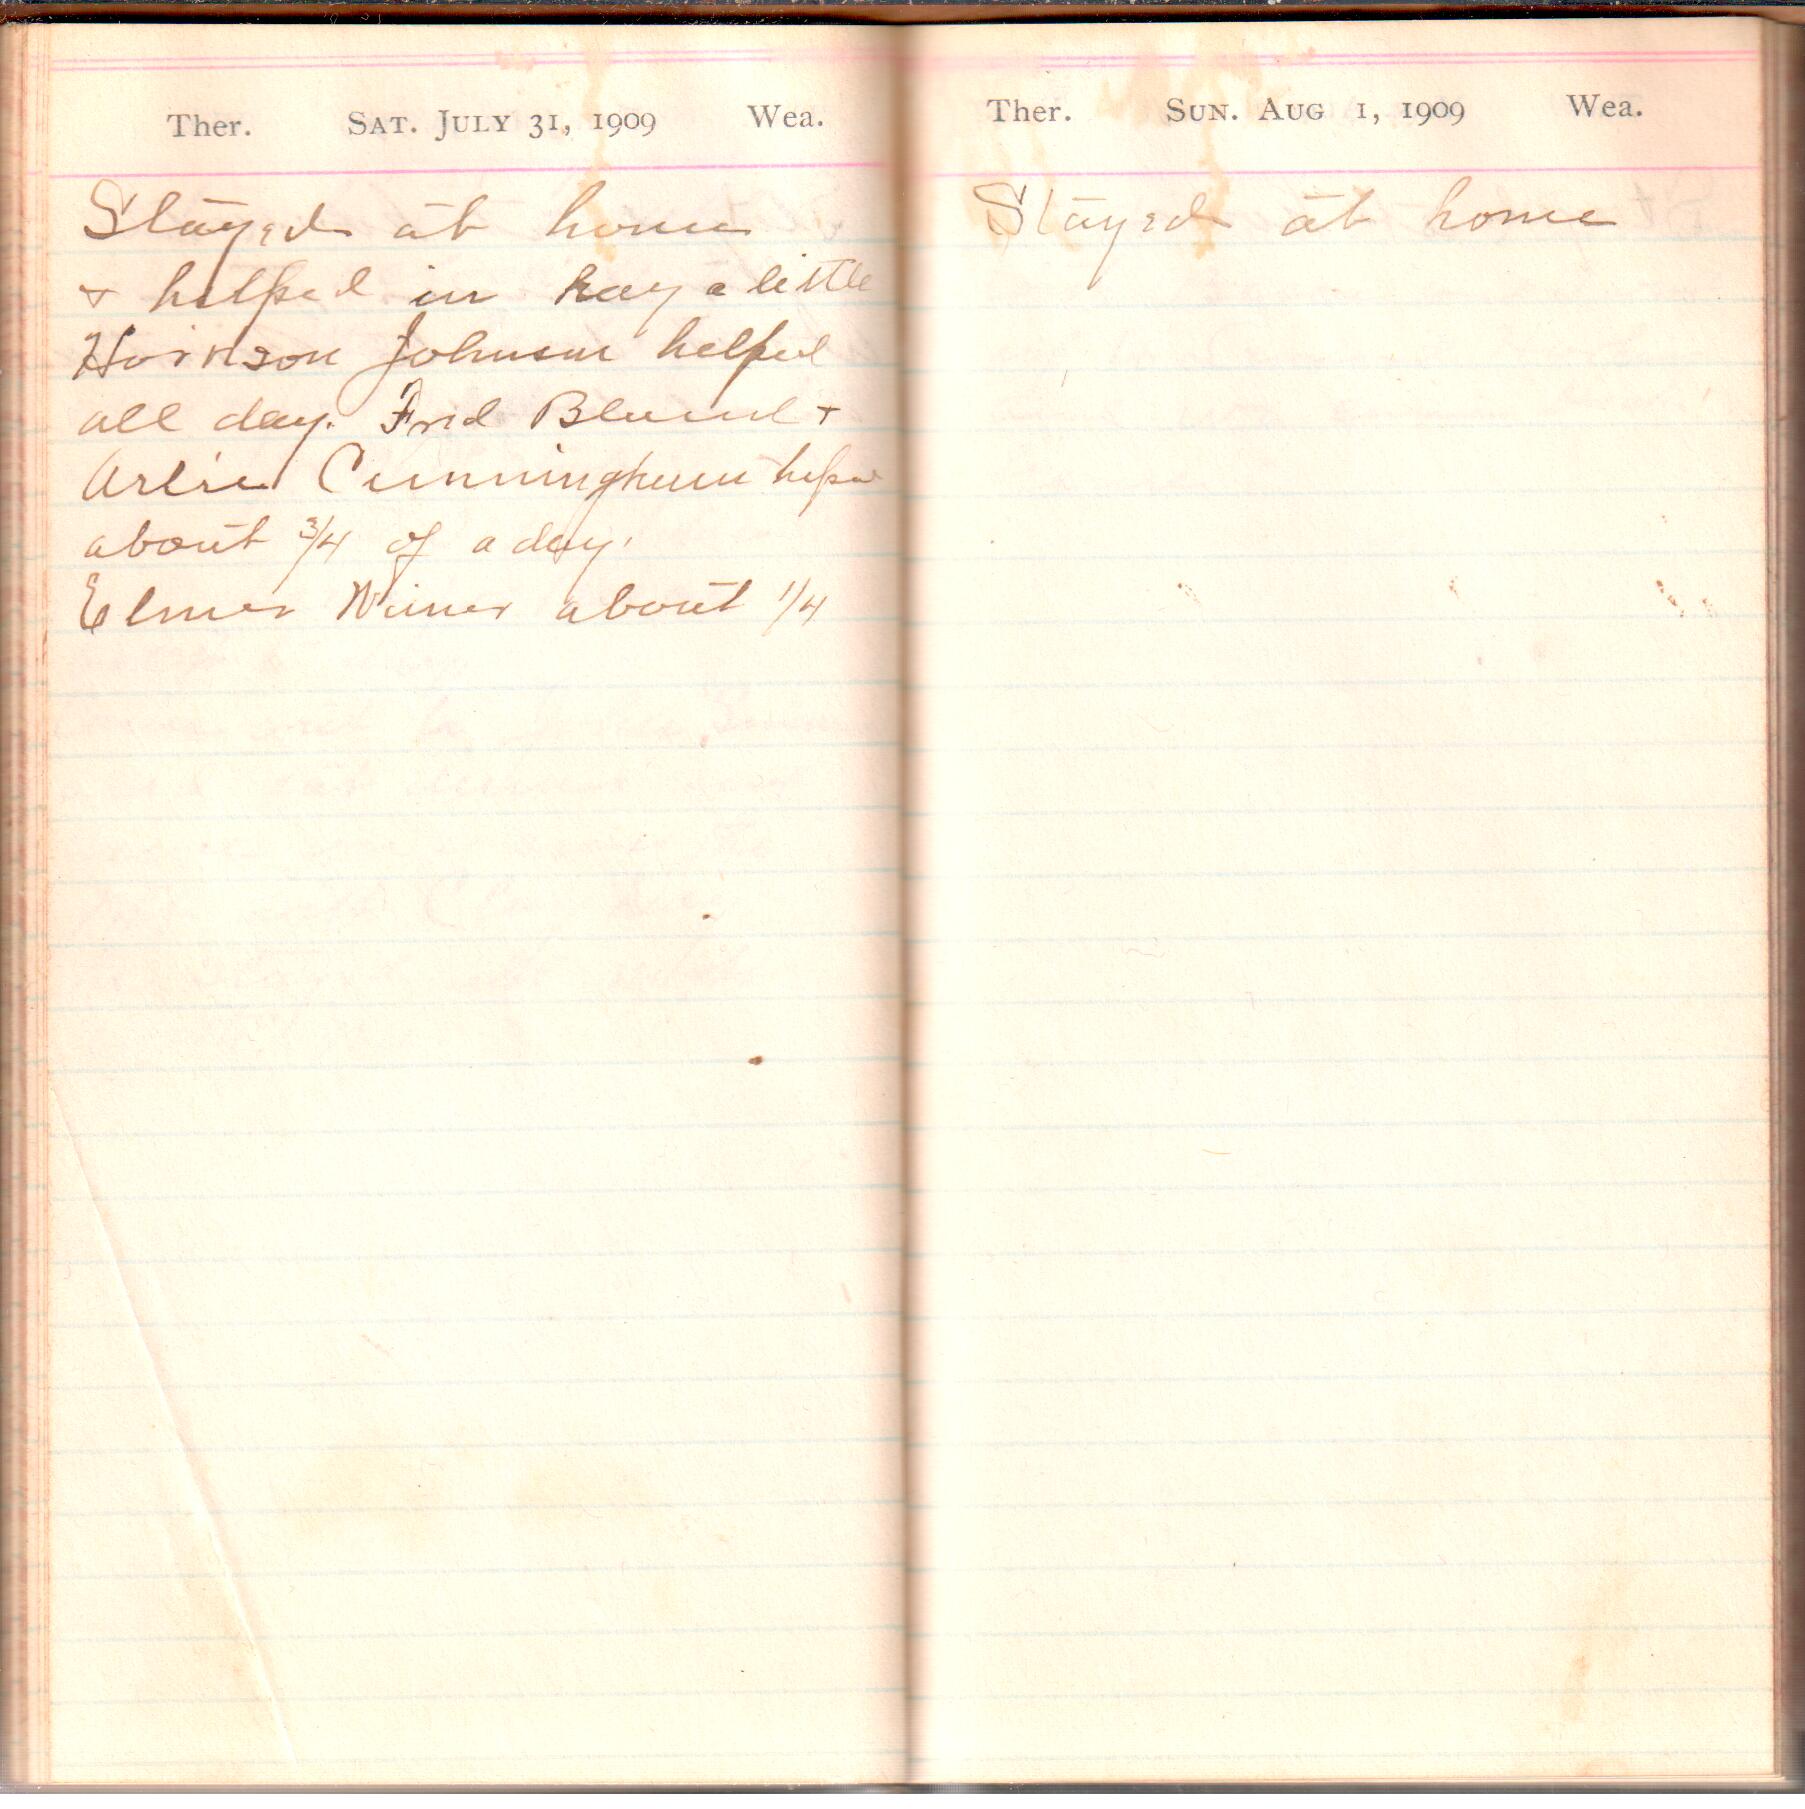 Ther. Sat. July 31, 1909 Wea.
Stayed at home
& helped in hay a little
Johnson helped
all day. Fred &
Artie Cunningham helped
about 3/4 of a day.
Elmer about 1/4
Ther. Sun. Aug 1, 1909 Wea.
Stayed at home